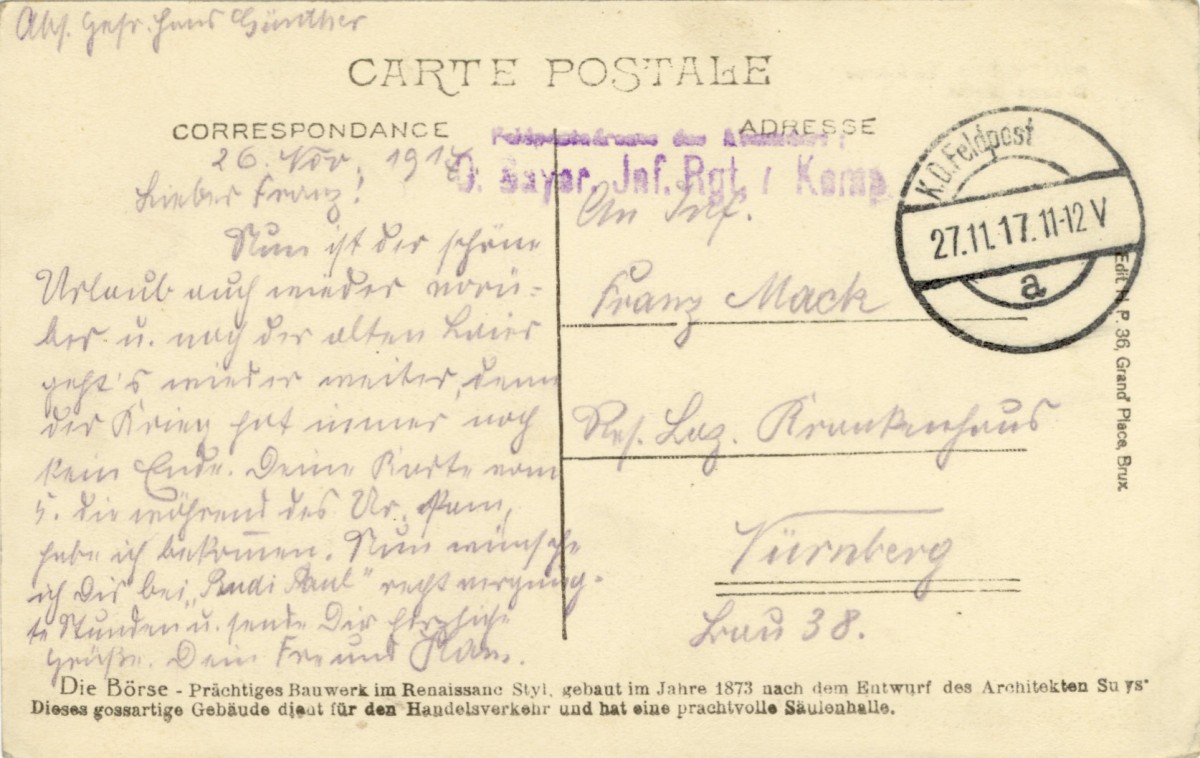 Abs. Gefr. Hans Günther
CARTE POSTALE
CORRESPONDANCE
ADRESSE
Feldpostadresse des Absenders:
0. Bayer. Inf. Rgt. / Komp.
K.D. Feldpost
27.11.17. 11-12 V
a
26. Nov. 1917.
Lieber Franz!
Nun ist der schöne
Urlaub auch wieder vorü-
ber u. nach der alten Leier
geht's wieder weiter, denn
der Krieg hat immer noch
kein Ende. Deine Karte vom
5. die während des Url. kam,
habe ich bekommen. Nun wünsche
ich Dir bei „Rudi Paul" recht vergnüg-
te Stunden u. sende Dir herzliche
Grüße. Dein Freund Hans.
An Inf.
Franz Mack
Res. Laz. Krankenhaus
Nürnberg
Bau 38.
Edit. N. P. 36, Grand' Place, Brux
Die Börse - Prächtiges Bauwerk im Renaissanc Styl, gebaut im Jahre 1873 nach dem Entwurf des Architekten Suys.
Dieses gossartige Gebäude dient für den Handelsverkehr und hat eine prachtvolle Säulenhalle.